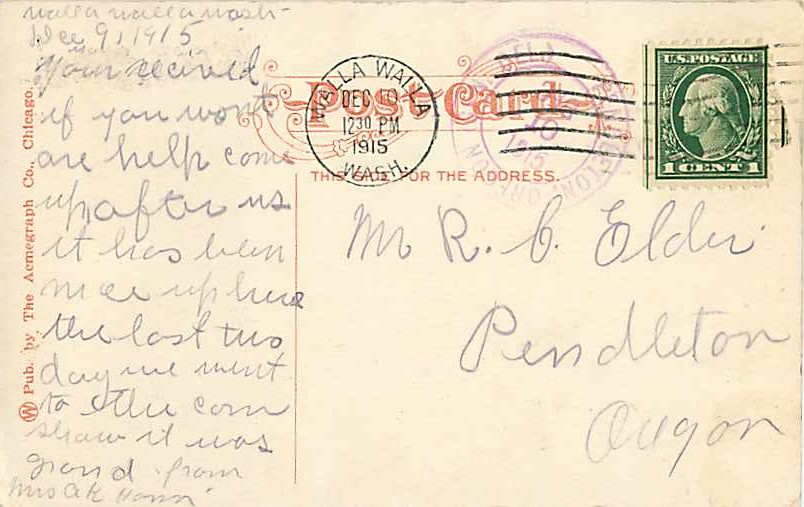 walla walla wash-
Dec 9, 1915
your recived
if you wont
are help come
up after us
it has been
nice up here
the last two
day we went
to the corn
show it was
grand from
Mrs
Pub. by The Acmegraph Co., Chicago.
Post Card
THIS SIDE FOR THE ADDRESS.
WALLA WALLA
DEC 10
1230 PM
1915
WASH.
1915
OREGON
U.S. POSTAGE
1 CENT 1
Mr R. C. Elder
Pendleton
Oregon